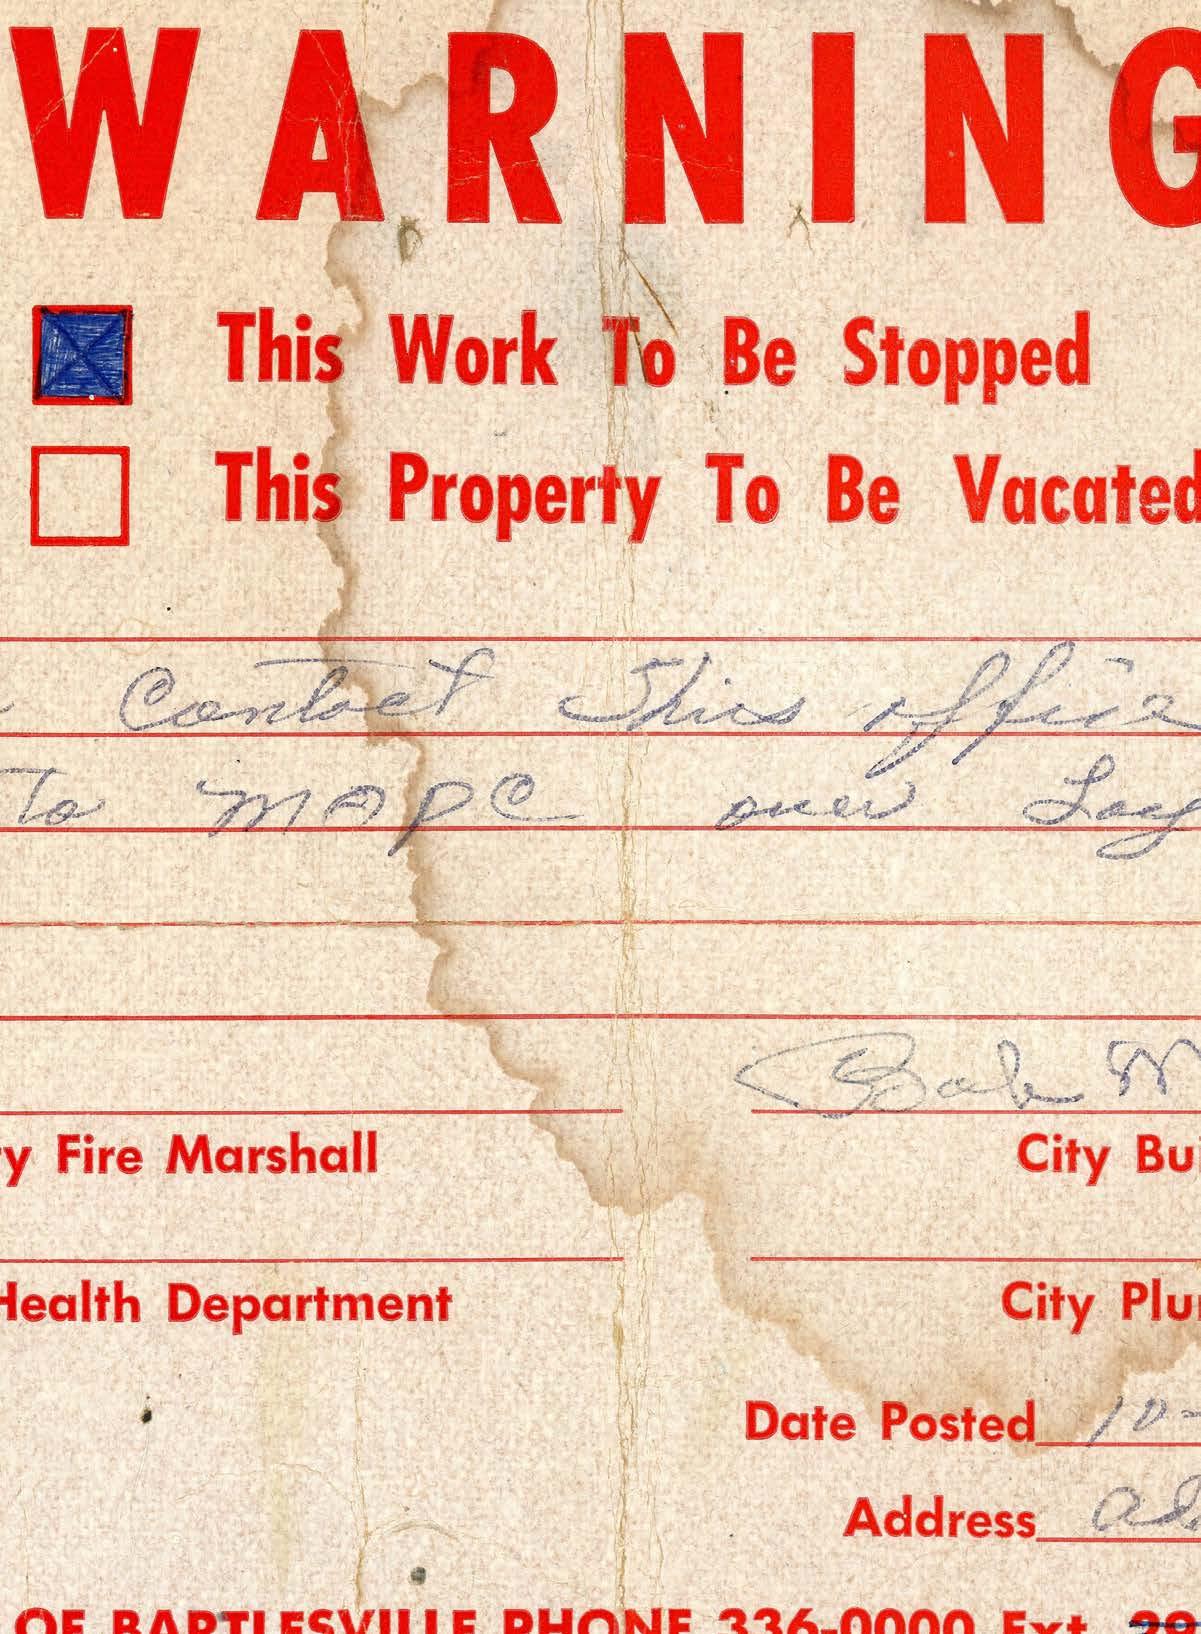 WARNING
This Work To Be Stopped
This Property To Be Vacated
Contact This office
To MAPC over Log
Bob W
y Fire Marshall
City Bu
Health Department
City Plu
Date Posted 10-
Address
OF BARTLESVILLE PHONE 336-0000 Ext. 29